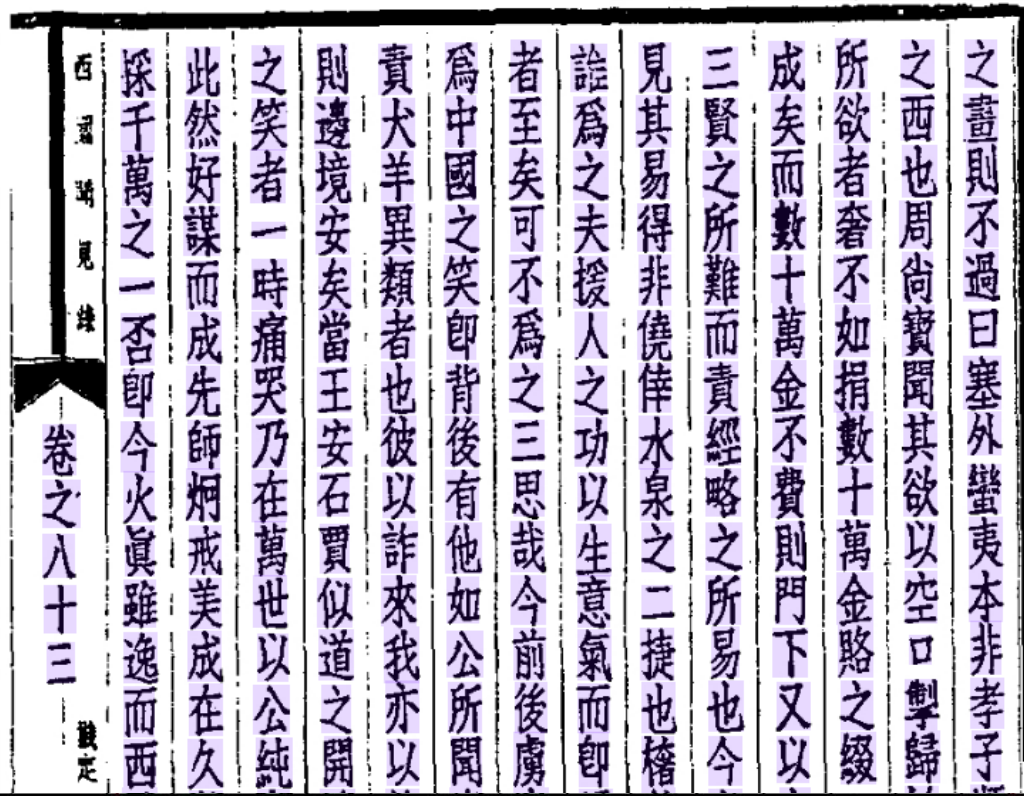 之畫則不過曰塞外蠻夷本非孝子
之西也周尙寶聞其欲以空口掣歸
所欲者奢不如捐數十萬金賂之綴
成矣而數十萬金不費則門下又以
三賢之所難而責經略之所易也今
見其易得非僥倖水泉之二捷也楮
爲之夫援人之功以生意氣而卽
者至矣可不爲之三思哉今前後虜
爲中國之笑卽背後有他如公所聞
責犬羊異類者也彼以詐來我亦以
則邊境安矣當王安石賈似道之開
之笑者一時痛哭乃在萬世以公純
此然好謀而成先師炯戒美成在久
採千萬之一否卽今火眞雖逸而西
西 聞見錄
卷之八十三